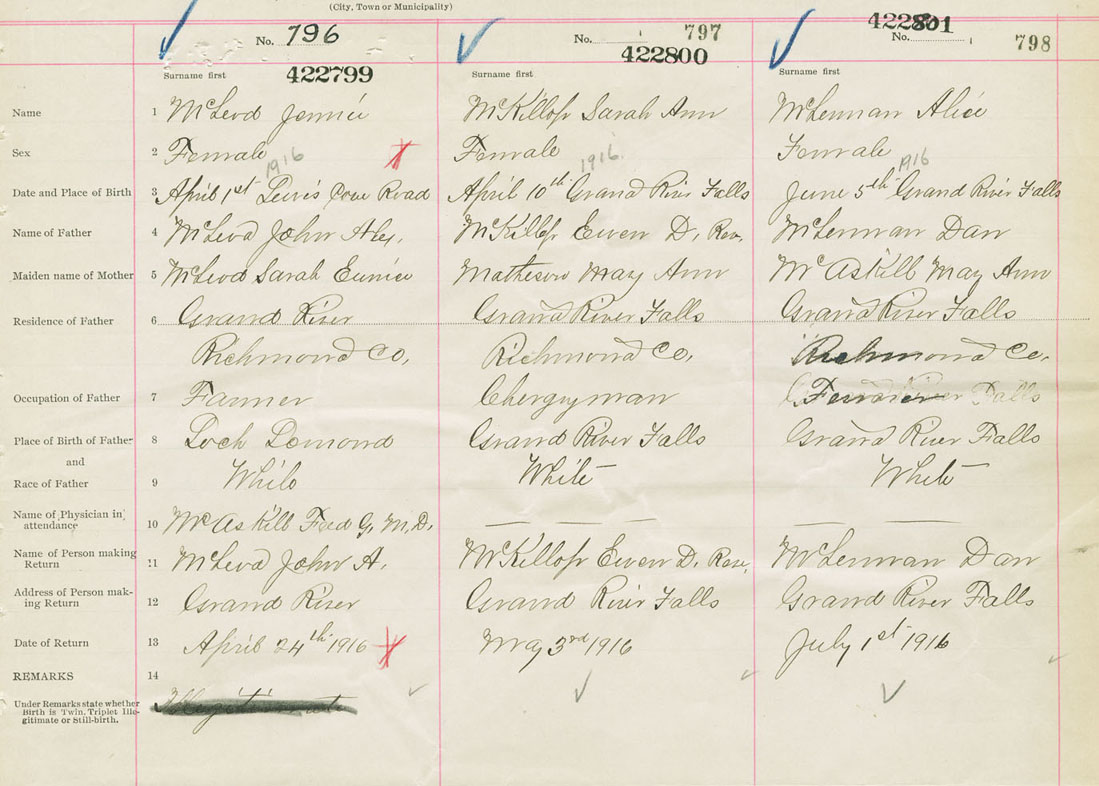 (City, Town or Municipality)
No. 796 No. 797 422801 No. 798
Surname first 422799 Surname first 422800 Surname first
Name 1 McLeod Jennie McKillop Sarah Ann McLennan Alice
Sex 2 Female Female Female
1916 1916. 1916
Date and Place of Birth 3 April 1st Lewis Cove Road April 10th Grand River Falls June 5th Grand River Falls
Name of Father 4 McLeod John Alex. McKillop Ewen D. Rev. McLennan Dan
Maiden name of Mother 5 McLeod Sarah Eunice Matheson May Ann McAskill May Ann
Residence of Father 6 Grand River Grand River Falls Grand River Falls
Richmond Co. Richmond Co. Richmond Co.
Occupation of Father 7 Farmer Cherguyman Falls
Place of Birth of Father 8 Loch Lomond Grand River Falls Grand River Falls
and
Race of Father 9 White White White
Name of Physician in attendance 10 McAskill Fred G. M.D.
Name of Person making Return 11 McLeod John A. McKillop Ewen D. Rev. McLennan Dan
Address of Person making Return 12 Grand River Grand River Falls Grand River Falls
Date of Return 13 April 24th 1916 May 3rd 1916 July 1st 1916
REMARKS 14
Under Remarks state whether
Birth is Twin, Triplet Ille-
gitimate or Still-birth.